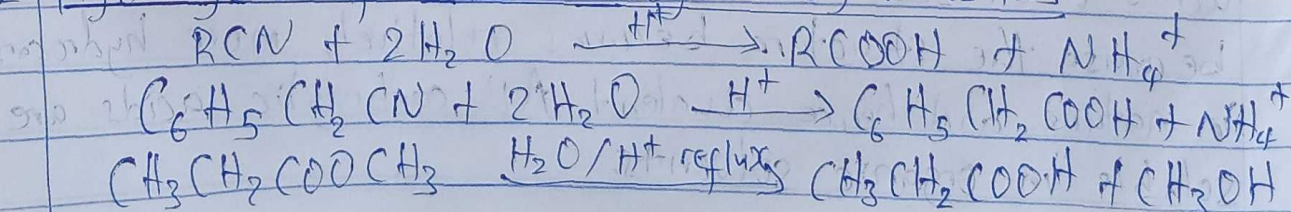 RCN + 2H₂O —H⁺→ RCOOH + NH₄⁺
C₆H₅CH₂CN + 2H₂O —H⁺→ C₆H₅CH₂COOH + NH₄⁺
CH₃CH₂COOCH₃ —H₂O/H⁺ reflux→ CH₃CH₂COOH + CH₃OH